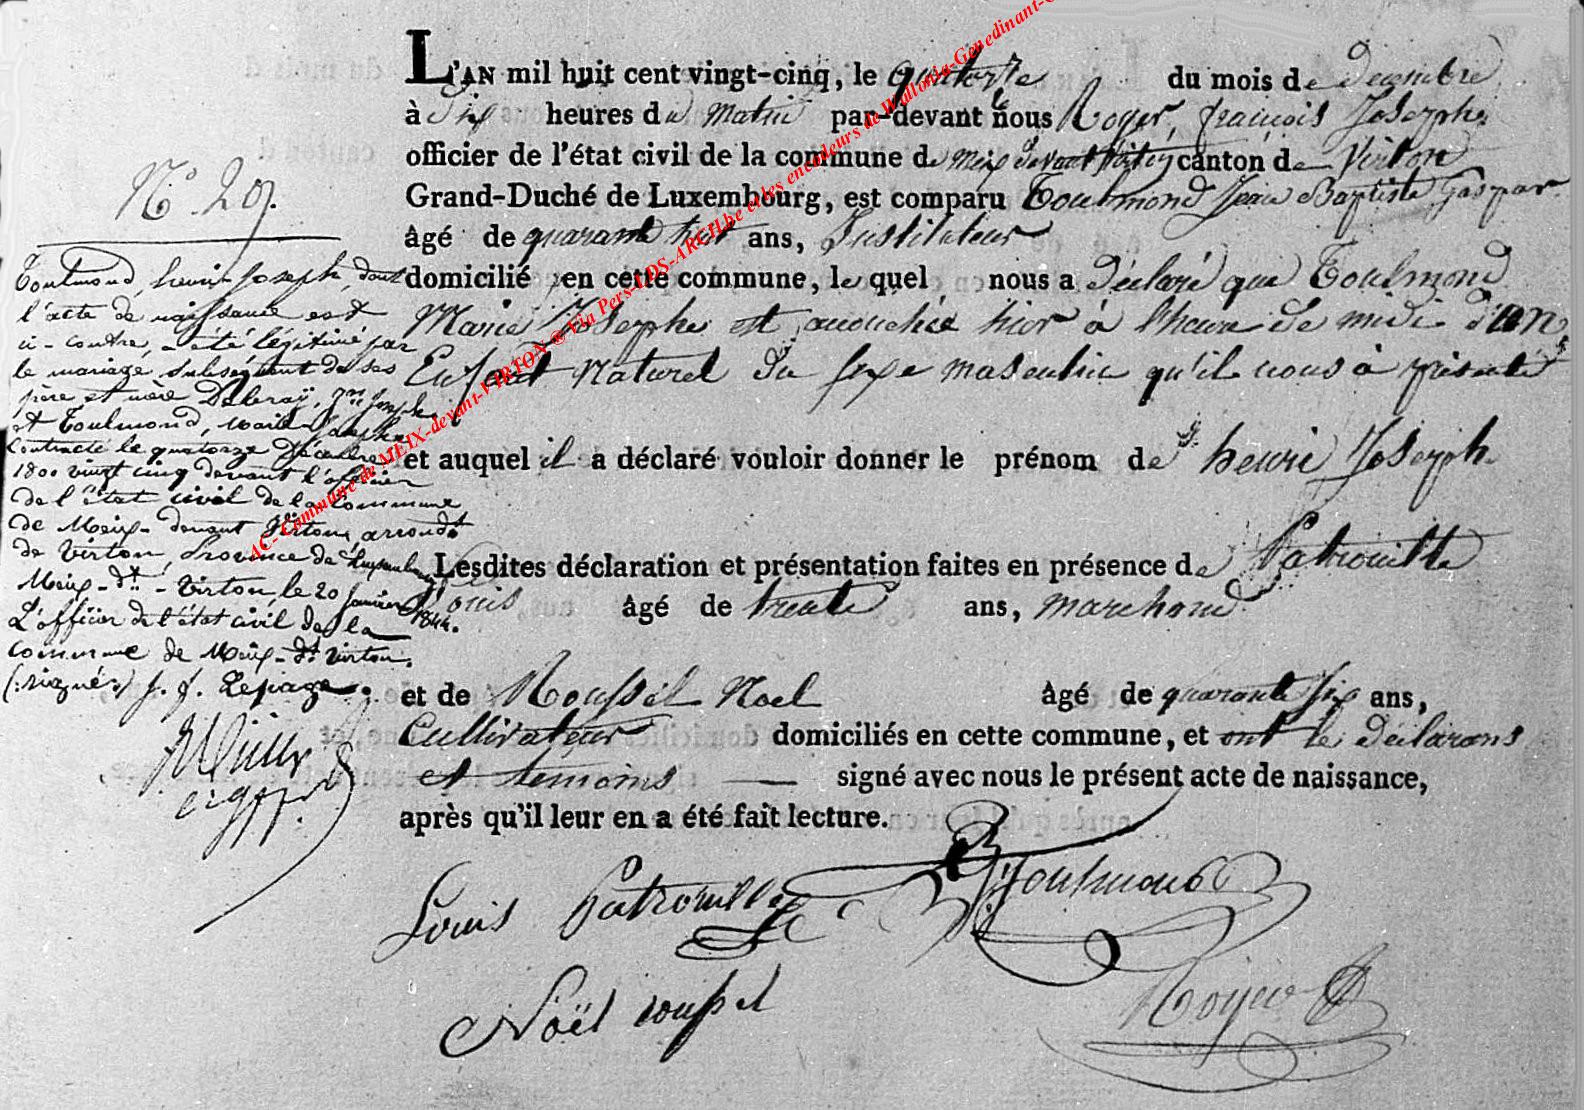 L'AN mil huit cent vingt-cinq, le quatorze du mois de Decembre
à Dix heures du Matin par-devant nous Roger, françois Josephe
officier de l'état civil de la commune de meix devant virton canton de Virton
Grand-Duché de Luxembourg, est comparu Toulmond Jean Baptiste Gaspar
âgé de quarante huit ans, Instituteur
domicilié en cette commune, le quel nous a déclaré que Toulmond
Marie Josephe est accouchée hier à l'heure de midi d'un
Enfant Naturel du sexe masculin qu'il nous à présenté
et auquel il a déclaré vouloir donner le prénom de henri Joseph
Lesdites déclaration et présentation faites en présence de Patrouille
Louis âgé de trente ans, marchand
et de Roussel Noel âgé de quarante six ans,
Cultivateur domiciliés en cette commune, et ont le déclarans
et temoins signé avec nous le présent acte de naissance,
après qu'il leur en a été fait lecture.
Louis Patrouille Toulmond
Noël roussel Roger
N° 29.
Toulmond, henri Joseph, dont
l'acte de naissance est
ci-contre, a été légitimé par
le mariage subséquent de ses
père et mère Joseph
et Toulmond, marie Josephe
contracté le quatorze Décembre
1800 vingt cinq devant l'officier
de l'état civil de la commune
de Meix-devant Virton, arrondt
de Virton, Province de Luxembourg
Meix-dt-Virton, le 20 Janvier
1844.
L'officier de l'état civil de la
commune de Meix-dt Virton.
(:signé:) J. J. Lepage.
AC-Commune de MEIX-devant-VIRTON © Via Pers-LDS-ARCH.be et les encodeurs de Wallonia-Genedinant-